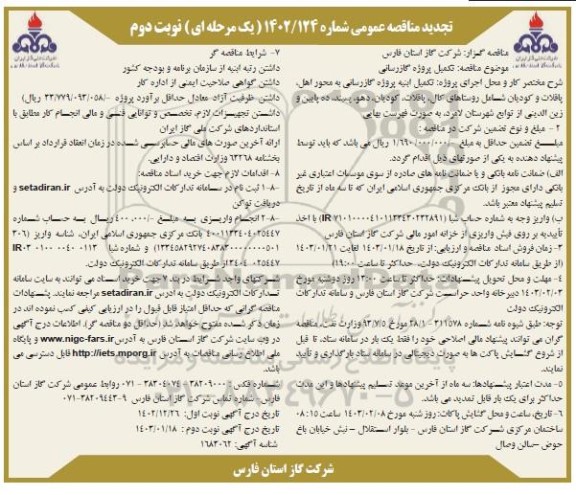 تجدید مناقصه عمومی شماره ۱۴۰۲/۱۲۴ (یک مرحله ای) نوبت دوم
شرکت ملی گاز ایران
مناقصه گزار: شرکت گاز استان فارس
موضوع مناقصه: تکمیل پروژه گازرسانی
شرح مختصر کار و محل اجرای پروژه: تکمیل ابنیه پروژه گازرسانی به محور اهل،
پاقلات و کودیان شامل روستاهای کال، پاقلات، کودیان، دهو، پسند، ده پایین و
زین الدینی از توابع شهرستان لامرد، به صورت فهرست بهایی
۲ – مبلغ و نوع تضمین شرکت در مناقصه:
مبلغ تضمین حداقل به مبلغ ۱/۶۶۰/۰۰۰/۰۰۰ ریال می باشد که باید توسط
پیشنهاد دهنده به یکی از صورتهای ذیل اقدام گردد.
الف) ضمانت نامه بانکی و یا ضمانت نامه های صادره از سوی موسسات اعتباری غیر
بانکی دارای مجوز از بانک مرکزی جمهوری اسلامی ایران که تا سه ماه از تاریخ
تسلیم پیشنهاد معتبر باشد.
ب) واریز وجه به شماره حساب شبا با اخذ
تأییدیه بر روی فیش واریزی از خزانه امور مالی شرکت گاز استان فارس
۳- زمان فروش اسناد مناقصه و ارزیابی: از تاریخ ۱۴۰۳/۰۱/۱۸ لغایت ۱۴۰۳/۰۱/۲۱
(از طریق سامانه تدارکات الکترونیک دولت، حداکثر تا ساعت ۱۹:۰۰)
۴- مهلت و محل تحویل پیشنهادات: حداکثر تا ساعت ۱۳:۰۰ روز دوشنبه مورخ
۱۴۰۳/۰۲/۰۳ دبیرخانه واحد حراست شرکت گاز استان فارس و سامانه تدارکات
الکترونیک دولت
توجه: طبق شیوه نامه شماره ۳۱۱۵۷۸ – ۲۸/۱ مورخ وزارت نفت، مناقصه
گران می توانند پیشنهاد مالی اصلاحی خود را فقط یک بار در سامانه ستاد، تا قبل
از شروع گشایش پاکت ها به صورت دیجیتالی در سامانه ستاد بارگذاری و تأیید
نمایند.
۵- مدت اعتبار پیشنهادها: سه ماه از آخرین موعد تسلیم پیشنهادها و این مدت
حداکثر برای یک بار قابل تمدید می باشد.
۶- تاریخ، ساعت و محل گشایش پاکات: روز شنبه مورخ ۱۴۰۳/۰۲/۰۸ ساعت ۰۸:۱۵
ساختمان مرکزی شرکت گاز استان فارس – بلوار استقلال – نبش خیابان باغ
حوض –سالن وصال
۷- شرایط مناقصه گر
داشتن رتبه ابنیه از سازمان برنامه و بودجه کشور
داشتن گواهی صلاحیت ایمنی از اداره کار
داشتن ظرفیت آزاد معادل حداقل برآورد پروژه (۳۳/۷۷۹/۰۹۳/۰۵۸/- ریال)
داشتن تجهیزات لازم، تخصص و توانایی فنی و مالی انجام کار مطابق با
استانداردهای شرکت ملی گاز ایران
ارائه آخرین صورت های مالی حسابرسی شده در زمان انعقاد قرارداد بر اساس
بخشنامه ۶۳۲۶۸ وزارت اقتصاد و دارایی.
۸- اقدامات لازم جهت خرید اسناد مناقصه:
۸-۱ ثبت نام در سامانه تدارکات الکترونیک دولت به آدرس setadiran.ir و
دریافت توکن
۸-۲ انجام واریزی به مبلغ ۴۰۰,۰۰۰/- ریال به حساب شماره
بانک مرکزی جمهوری اسلامی ایران، شناسه واریز
و شماره شبا
از طریق سامانه تدارکات الکترونیک دولت.
شرکتهای واجد شرایط در بند ۷ جهت خرید اسناد می توانند به سایت سامانه
تدارکات الکترونیک دولت به آدرس setadiran.ir مراجعه نمایند. پیشنهادات
مناقصه گرانی که حداقل امتیاز قابل قبول را در ارزیابی کیفی کسب نموده اند در
زمان ذکر شده مفتوح خواهد شد (حداقل دو مناقصه گر). اطلاعات درج آگهی
در وب سایت شرکت گاز استان فارس به آدرس www.nigc-fars.ir و پایگاه
ملی اطلاع رسانی مناقصات به آدرس http://iets.mporg.ir قابل دسترسی می
باشد.
شماره فکس: ۳۸۲۰۹۰۰۰ – ۳۸۳۰۴۰۷۴ – ۰۷۱ روابط عمومی شرکت گاز استان
فارس- شماره تماس شرکت گاز استان فارس ۹-۳۸۲۰۹۴۴۳-۰۷۱
تاریخ درج آگهی نوبت اول: ۱۴۰۲/۱۲/۲۶
تاریخ درج آگهی نوبت دوم: ۱۴۰۳/۰۱/۱۸
شناسه آگهی: ۱۶۸۳۰۶۲
شرکت گاز استان فارس